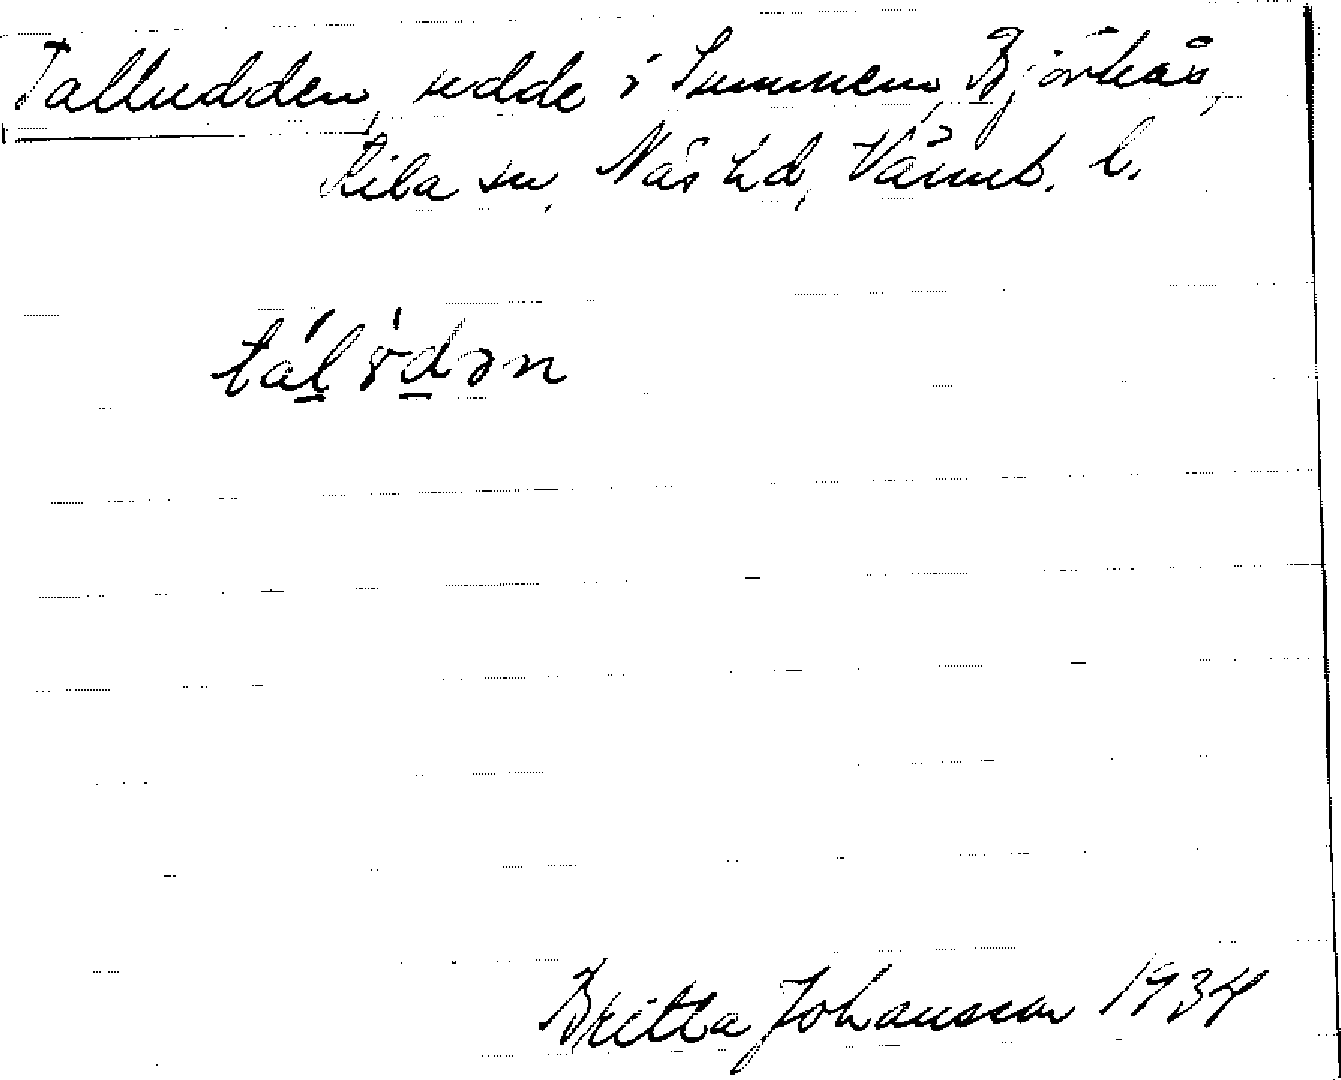 Talludden, udde i Summeln, Björkås,
Kila sn, Näs hd, Värml. l.
tálödən
Britta Johansson 1934